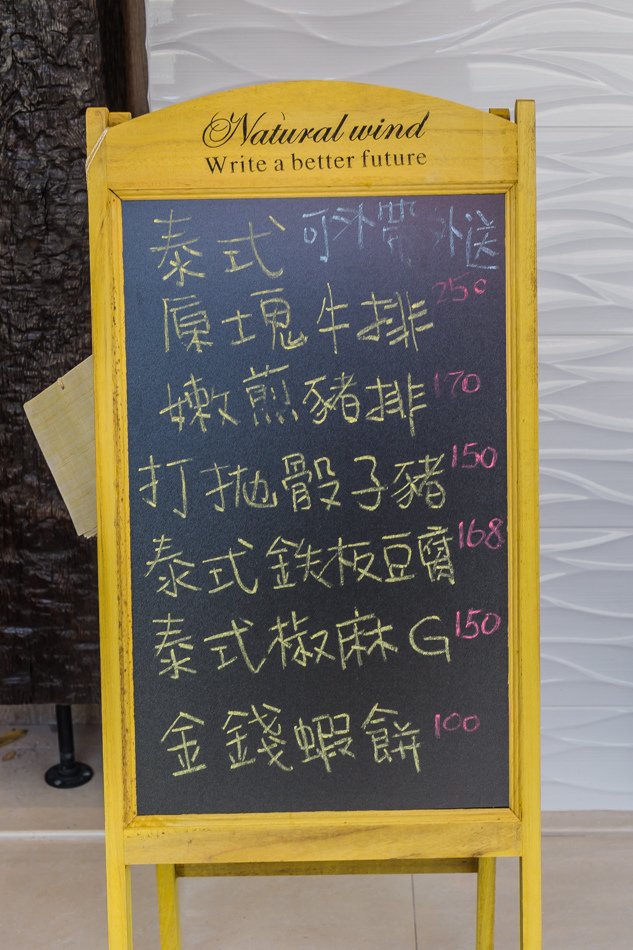 Natural wind
Write a better future
泰式 可外帶外送
原塊牛排 250
嫩煎豬排 170
打拋骰子豬 150
泰式鉄板豆腐 168
泰式椒麻G 150
金錢蝦餅 100